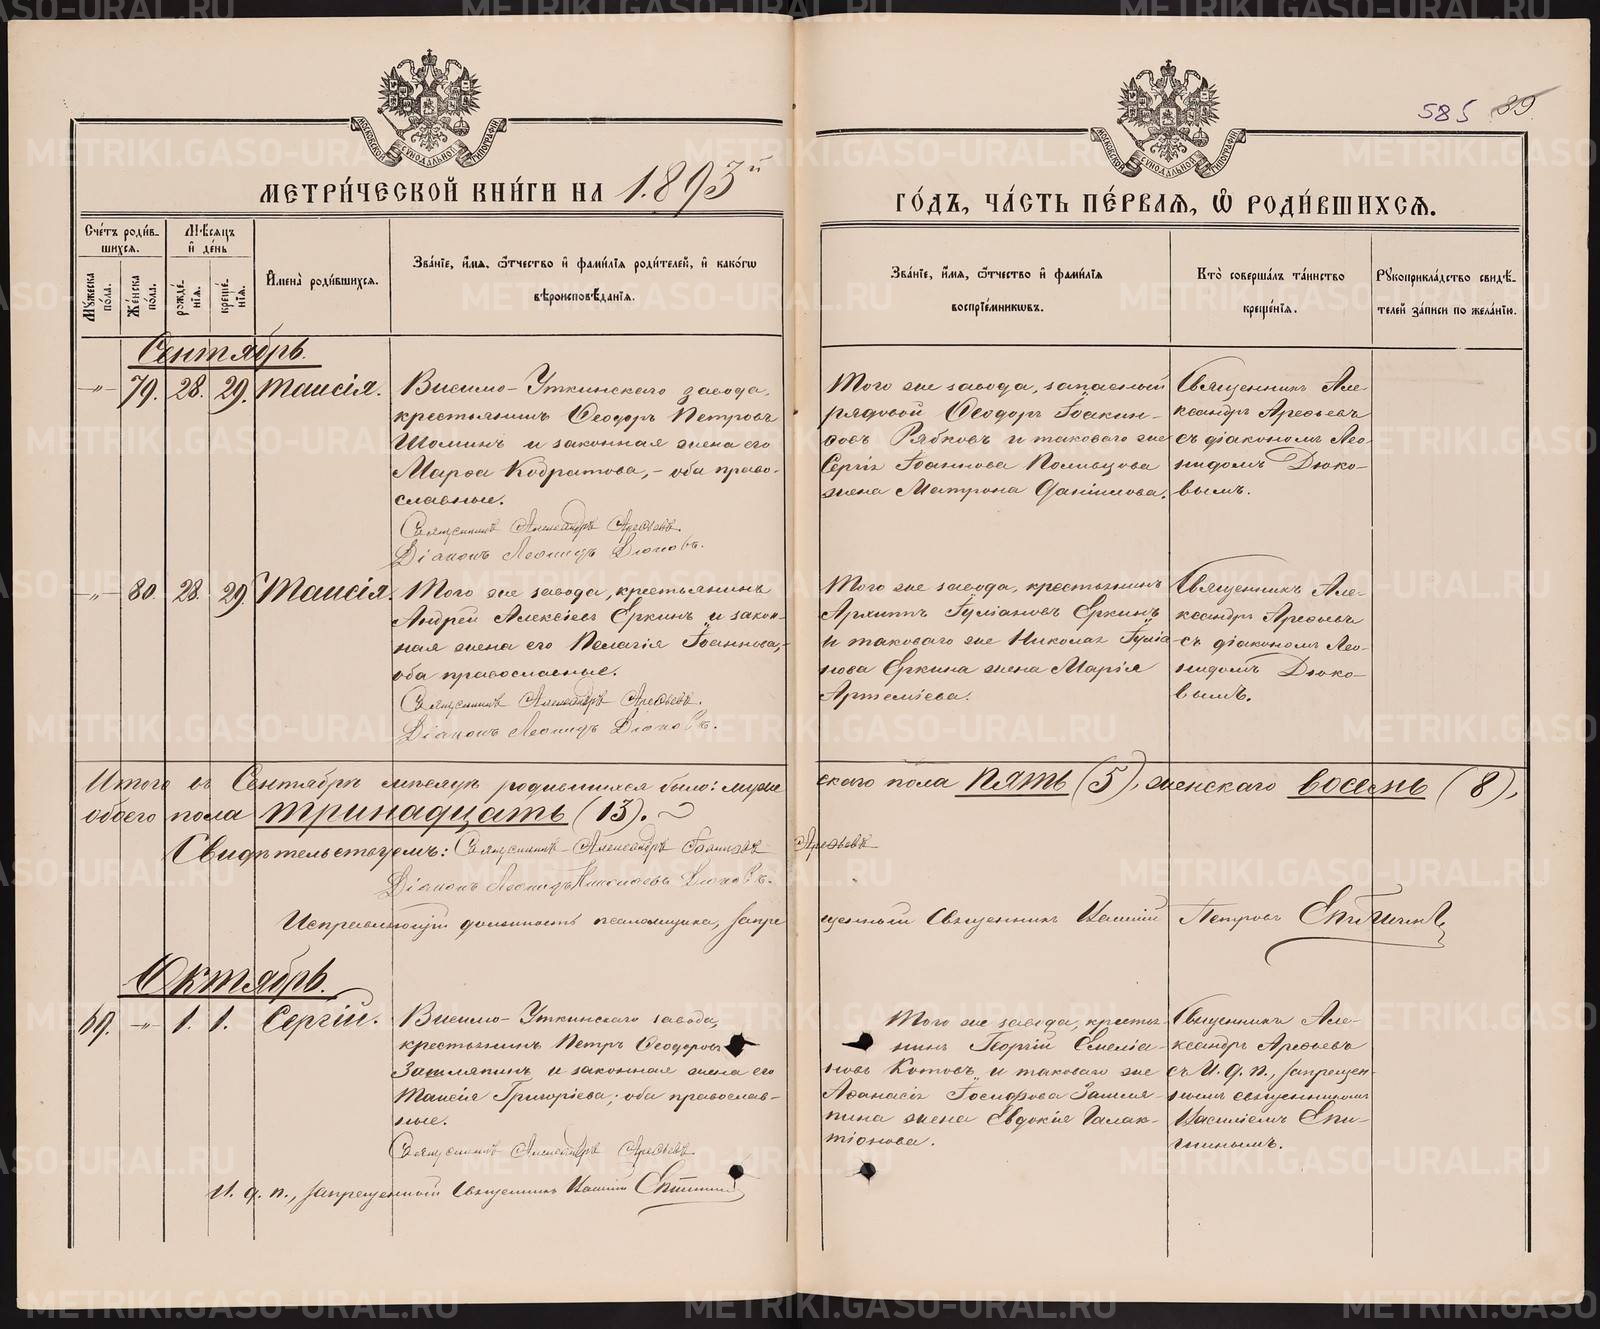 585 39
МЕТРИ́ЧЕСКОЙ КНИ́ГИ НА 1893й
ГО́ДЪ, ЧА́СТЬ ПЕ́РВАЯ, Ѡ РОДИ́ВШИХСЯ.
Сче́тъ роди́в-
шихся.
Мѣ́сяцъ
и҆ де́нь
Мꙋ́жеска
по́ла.
Же́нска
по́ла.
рожде́-
нїя.
креще́-
нїя.
И҆мена̀ роди́вшихся.
Зва́нїе, и҆́мя, ѻ҆́тчество и҆ фами́лїя роди́телей, и҆ како́гѡ
вѣроисповѣ́данїя.
Зва́нїе, и҆́мя, ѻ҆́тчество и҆ фами́лїя
воспрїе́мникѡвъ.
Кто̀ соверша́лъ та́инство
креще́нїя.
Рꙋкоприкла́дство свидѣ́-
телей за́писи по жела́нїю.
Сентябрь.
-"- 79. 28. 29. Таисія.
Висимо-Уткинскаго завода,
крестьянинъ Ѳеодоръ Петровъ
Шоминъ и законная жена его
Марѳа Кодратова, - оба право-
славные.
Священникъ Александръ Арефьевъ.
Діаконъ Леонидъ Дюковъ.
Того же завода, запасный
рядовой Ѳеодоръ Іоакин-
Рябковъ и таковаго же
Сергія Іоаннова Поливцова
жена Матрона Данiилова.
Священникъ Але-
ксандръ Арефьевъ
съ діакономъ Лео-
нидомъ Дюко-
вымъ.
-"- 80. 28. 29. Таисія.
Того же завода, крестьянинъ
Андрей Алексіевъ Еркинъ и закон-
ная жена его Пелагія Іоаннова, -
оба православные.
Священникъ Александръ Арефьевъ.
Діаконъ Леонидъ Дюковъ.
Того же завода, крестьянинъ
Архиппъ Іуліановъ Еркинъ
и таковаго же Николая Іуліа-
нова Еркина жена Марія
Артеміева.
Священникъ Але-
ксандръ Арефьевъ
съ діакономъ Лео-
нидомъ Дюко-
вымъ.
Итого въ Сентябрѣ мѣсяцѣ родившихся было: муже
скаго пола пять (5), женскаго восемь (8),
обоего пола тринадцать (13).
Свидѣтельствуемъ: Священникъ Александръ Іоанновъ Арефьевъ
Діаконъ Леонидъ Николаевъ Дюковъ.
Исправляющій должность псаломщика, запре
щенный Священникъ Василій Петровъ Спитинъ
Октябрь.
69. -"- 1. 1. Сергій.
Висимо-Уткинскаго завода,
крестьянинъ Петръ Ѳеодоровъ
Зашляпинъ и законная жена его
Таисія Григоріева; оба православ-
ные.
Священникъ Александръ Арефьевъ.
И. д. п., запрещенный Священникъ Василій Спитинъ
Того же завода, кресть-
нинъ Георгій Емеліа-
новъ Котовъ и таковаго же
Аѳанасія Іосифова Зашля-
пина жена Евдокія Галак-
тіонова.
Священникъ Але-
ксандръ Арефьевъ
съ И. д. п., запрещен-
нымъ священникомъ
Василіемъ Спи-
тинымъ.